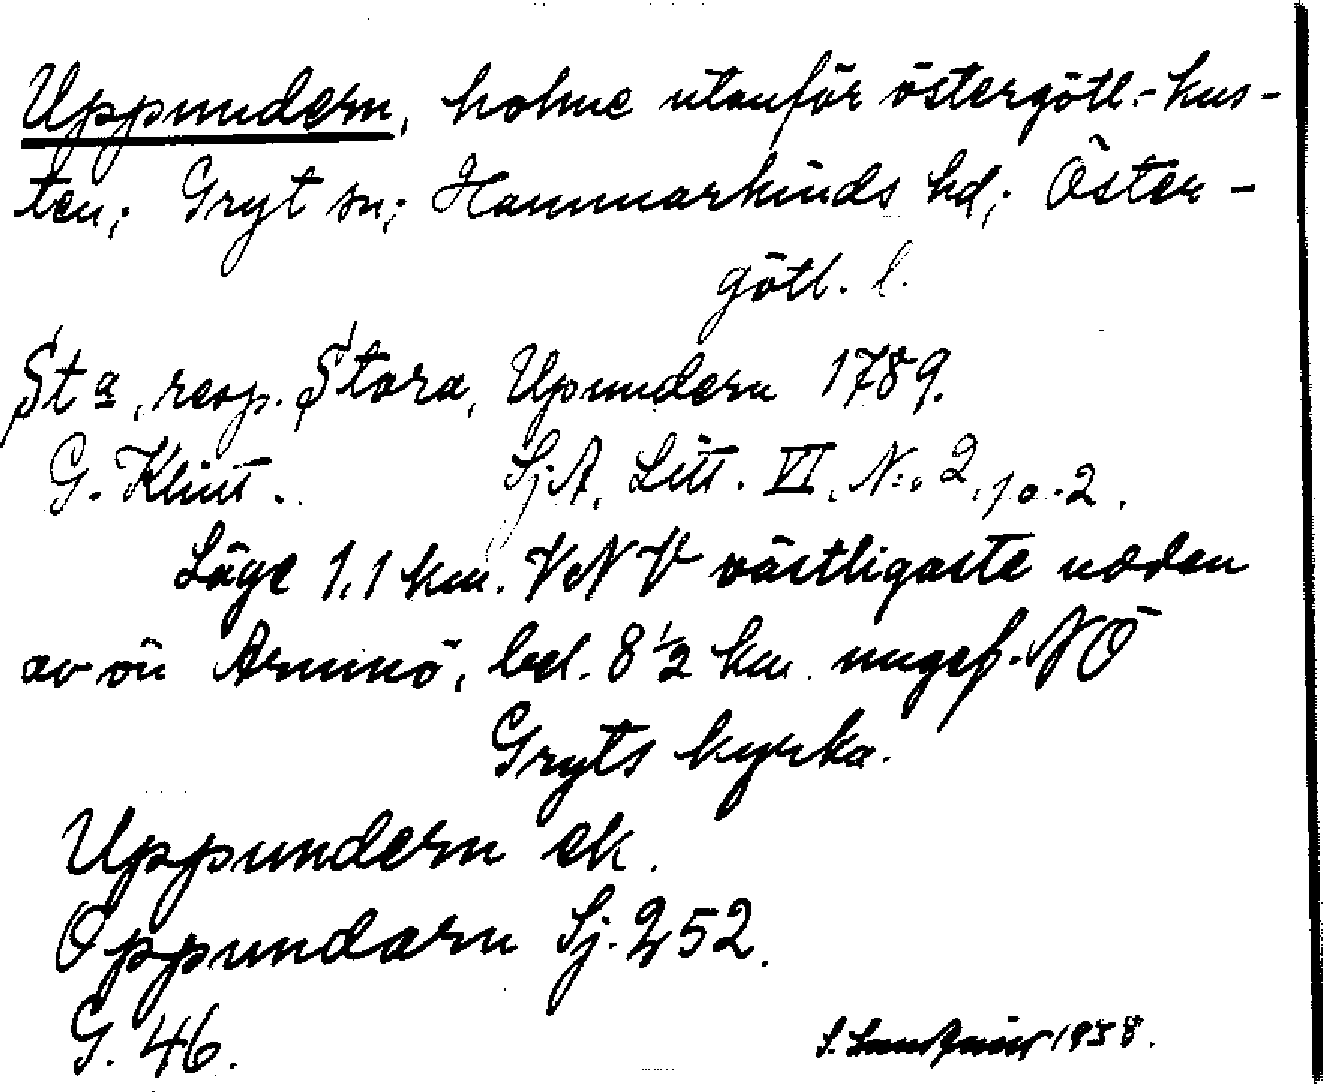 Uppundern, holme utanför östergötl.-kus-
ten; Gryt sn; Hammarkinds hd; Öster-
götl. l.
St a, resp. Stora, Upundern 1789.
G. Klint. Sj.A. Litt. VI. No. 2, p. 2.
Läge 1,1 km. VNV västligaste udden
av ön Armnö, bel. 8 1/2 km. ungef. NÖ
Gryts kyrka.
Uppundern ek.
Oppundarn Sj. 252.
G. 46. 1938.